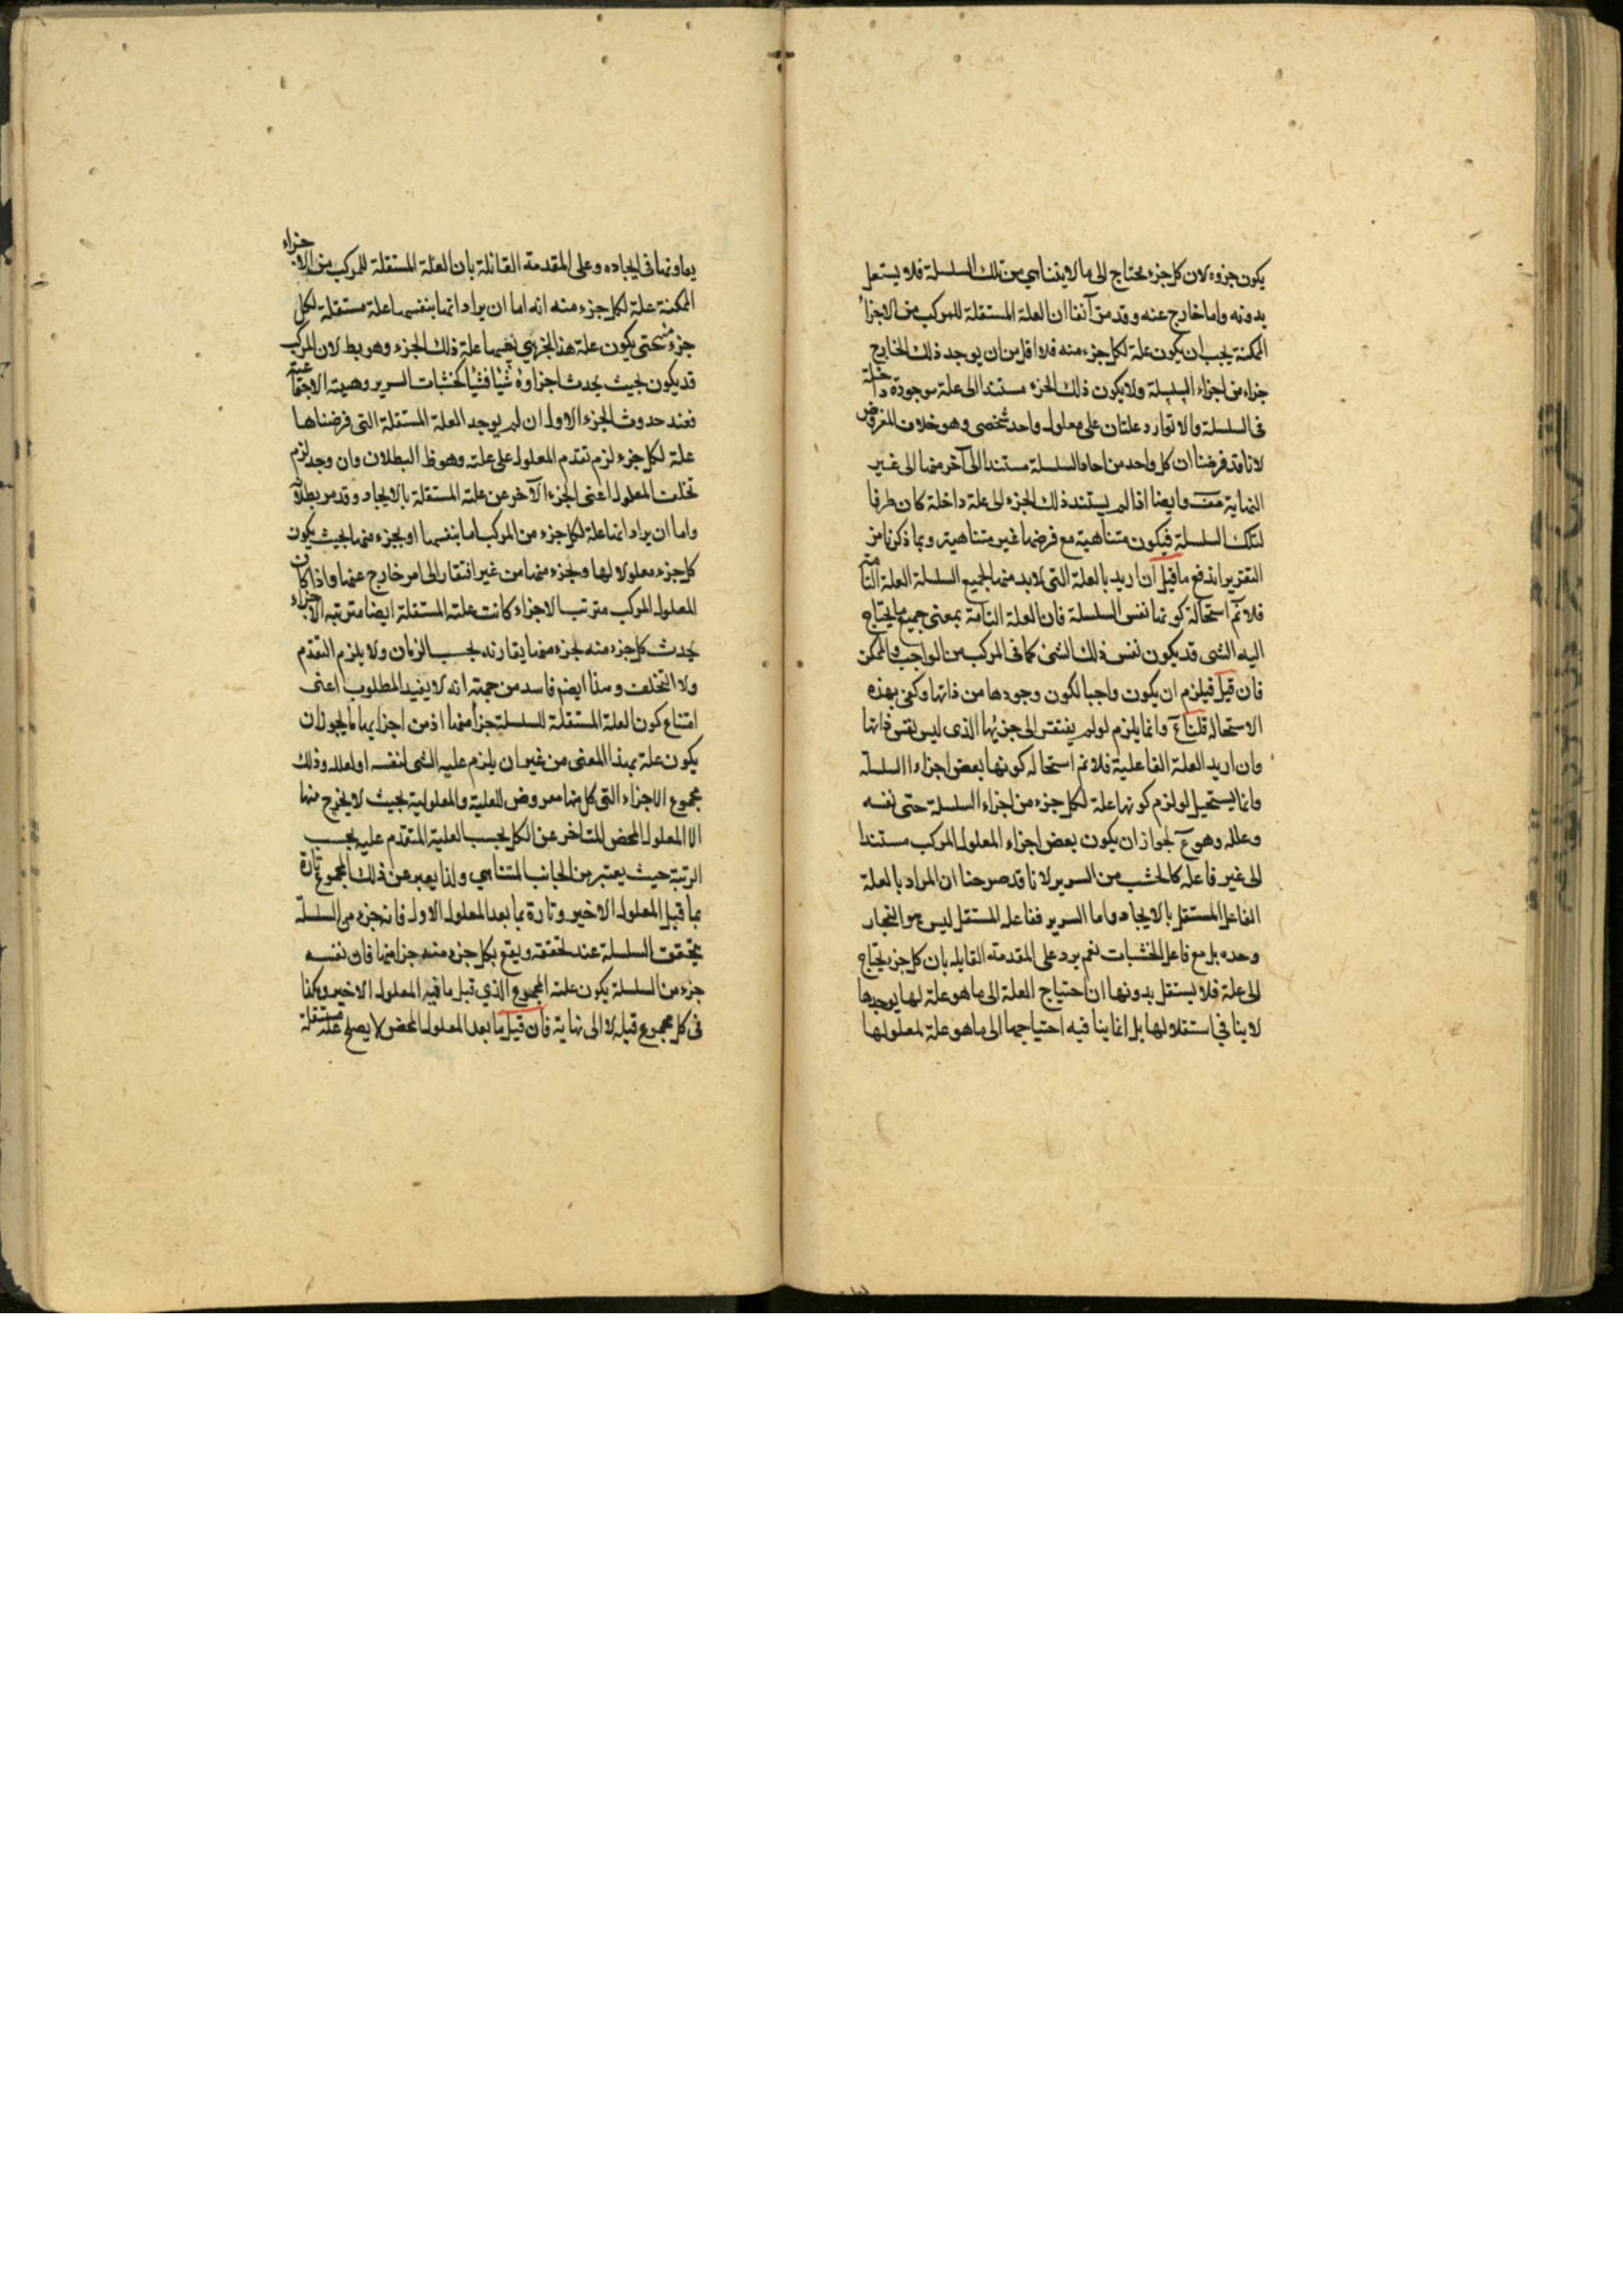 يكون جزوه لان كل جزء محتاج الى ما لا يتناهى من تلك السلسلة فلا يستقل
بدونه واما خارج عنه وقد مر آنفا ان العلة المستقلة للمركب من الاجزاء
الممكنة يجب ان يكون علة لكل جزء منه فلا اقل من ان يوجد ذلك الخارج
جزاء من اجزاء السلسلة ولا يكون ذلك الجزء مستندا الى علة موجودة داخلة
فى السلسلة والا توارد علتان على معلول واحد شخصى وهو خلاف المفروض
لانا قد فرضنا ان كل واحد من احاد السلسلة مستند الى آخر منها الى غير
النهاية هف وايضا اذا لم يستند ذلك الجزء الى علة داخلة كان طرفا
لتلك السلسلة فيكون متناهية مع فرضها غير متناهية وبما ذكرنا من
التقرير اندفع ما قيل ان اريد بالعلة التى لابد منها لجميع السلسلة العلة التامة
فلا نم استحالة كونها نفس السلسلة فان العلة التامة بمعنى جميع ما يحتاج
اليه الشى قد يكون نفس ذلك الشئ كما فى المركب من الواجب والممكن
فان قيل فيلزم ان يكون واجبا لكون وجودها من ذاتها وكفى بهذه
الاستحالة قلنا مم وانما يلزم لو لم يفتقر الى جزئها الذى ليس نفس ذاتها
وان اريد العلة الفاعلية فلا نم استحالة كونها بعض اجزاء السلسلة
وانما يستحيل لو لزم كونها علة لكل جزء من اجزاء السلسلة حتى نفسه
وعلله وهو مم لجواز ان يكون بعض اجزاء المعلول المركب مستندا
الى غير فاعله كالخشب من السرير لانا قد صرحنا ان المراد بالعلة
الفاعل المستقل بالايجاد واما السرير ففاعله المستقل ليس هو النجار
وحده بل مع فاعل الخشبات نعم يرد على المقدمة القايلة بان كل جزء يحتاج
الى علة فلا يستقل بدونها ان احتياج العلة الى ما هو علة لها يوجدها
لا ينافي استقلالها بل انما ينافيه احتياجها الى ما هو علة لمعلولها
يعاونها فى ايجاده وعلى المقدمة القائلة بان العلة المستقلة للمركب من الاجزاء
الممكنة علة لكل جزء منه انه اما ان يراد انها بنفسها علة مستقلة لكل
جزء منه حتى يكون علة هذا الجزء هي بعينها علة ذلك الجزء وهو بط لان المركب
قد يكون بحيث يحدث اجزاؤه شيئا فشيئا كخشبات السرير وهيئة الاجتماعية
فعند حدوث الجزء الاول ان لم يوجد العلة المستقلة التى فرضناها
علة لكل جزء لزم تقدم المعلول على علته وهو ظ البطلان وان وجد لزم
تخلف المعلول اعنى الجزء الآخر عن علته المستقلة بالايجاد وقد مر بطلانه
واما ان يراد انها علة لكل جزء من المركب اما بنفسها او بجزء منها بحيث يكون
كل جزء معلولا لها ولجزء منها من غير افتقار الى امر خارج عنها واذا كان
المعلول المركب مترتب الاجزاء كانت علته المستقلة ايضا مترتبة الاجزاء
يحدث كل جزء منه لجزء منها يقارنه بحسب الزمان ولا يلزم التقدم
ولا التخلف وهذا ايضا فاسد من جهة انه لا يفيد المطلوب اعنى
امتناع كون العلة المستقلة للسلسلة جزأ منها اذ من اجزايها ما يجوز ان
يكون علة بهذا المعنى من غير ان يلزم علية الشى لنفسه او لعلله وذلك
مجموع الاجزاء التى كل منها معروض للعلية والمعلولية بحيث لا يخرج منها
الا المعلول المحض المتاخر عن الكل بحسب العلية المتقدم عليه بحسب
الرتبة حيث يعتبر من الجانب المتناهي ولذا يعبر عن ذلك المجموع تارة
بما قبل المعلول الاخير وتارة بما بعد المعلول الاول فانه جزء من السلسلة
يتحقق السلسلة عند تحققه ويقع بكل جزء منه جزأ منها فان نفسه
جزء من السلسلة يكون علته المجموع الذي قبل ما فيه المعلول الاخير وهكذا
فى كل مجموع قبله لا الى نهاية فان قيل ما بعد المعلول المحض لا يصلح علة مستقلة